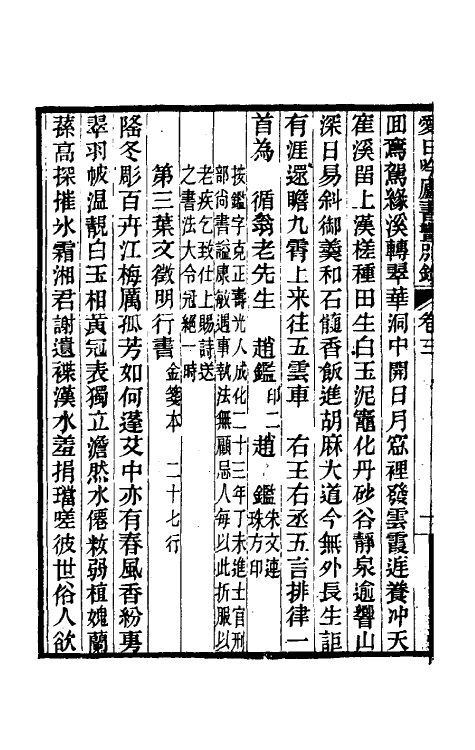 愛日吟廬書畫別錄 卷三 十一
回鸞駕緣溪轉翠華洞中開日月窓裡發雲霞庭養冲天
隺溪畱上漢槎種田生白玉泥竈化丹砂谷靜泉逾響山
深日易斜御羹和石髓香飯進胡麻大道今無外長生詎
有涯還瞻九霄上來往五雲車 右王右丞五言排律一
首為 循翁老先生 趙鑑 印二 趙 鑑 朱文連珠方印
按鑑字克正壽光人成化二十三年丁未進士官刑
部尚書謚康敏遇事執法無顧忌人每以此折服以
老疾乞致仕上賜詩送
之書法大令冠絕一時
第三葉文徵明行書 金箋本 二十七行
隆冬彫百卉江梅厲孤芳如何蓬艾中亦有春風香紛旉
翠羽帔温靚白玉相黃冠表獨立澹然水僊粧弱植媿蘭
蓀高探摧氷霜湘君謝遺褋漢水羞捐璫嗟彼世俗人欲